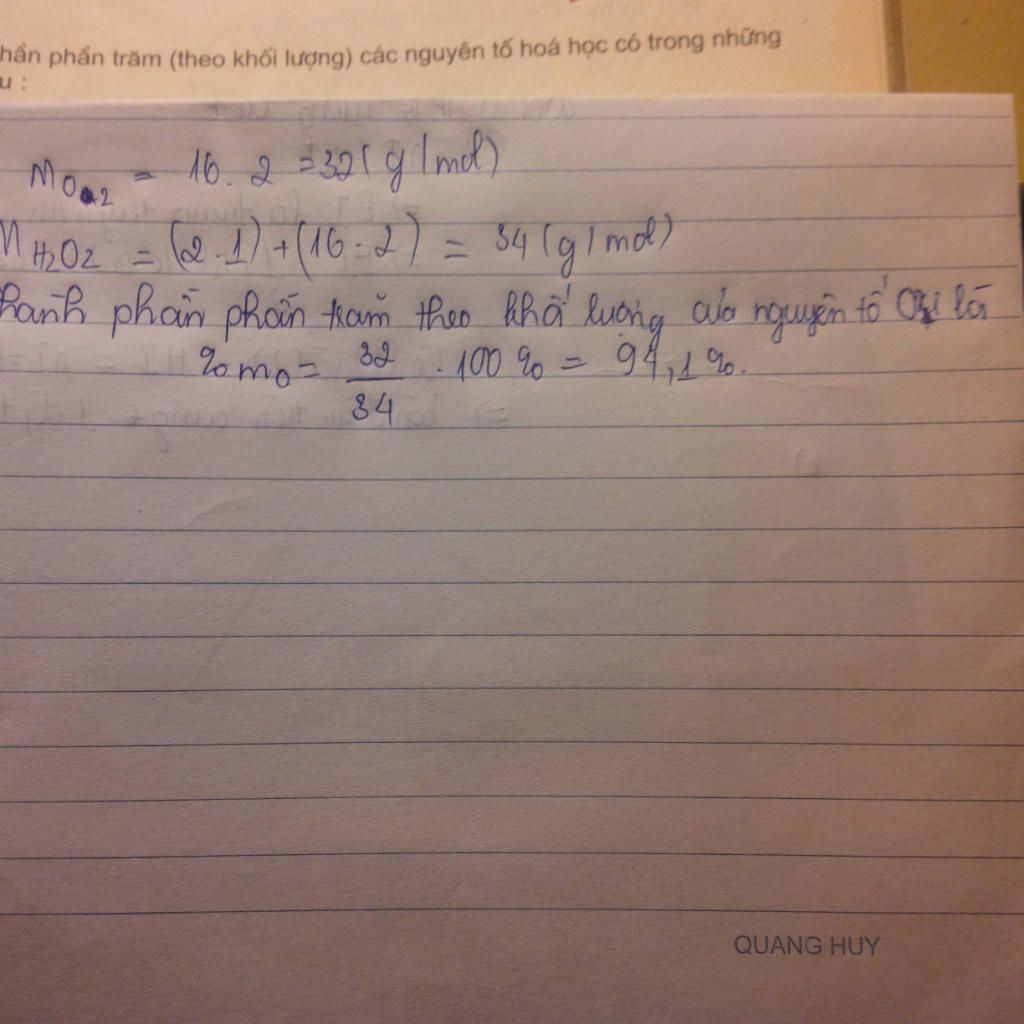 hần phần trăm (theo khối lượng) các nguyên tố hoá học có trong những
u :
MO2 = 16. 2 = 32 (g/mol)
M H2O2 = (2.1) + (16.2) = 34 (g/mol)
hành phần phần trăm theo khối lượng của nguyên tố O là
%mO = 32/34 . 100% = 94,1%.
QUANG HUY